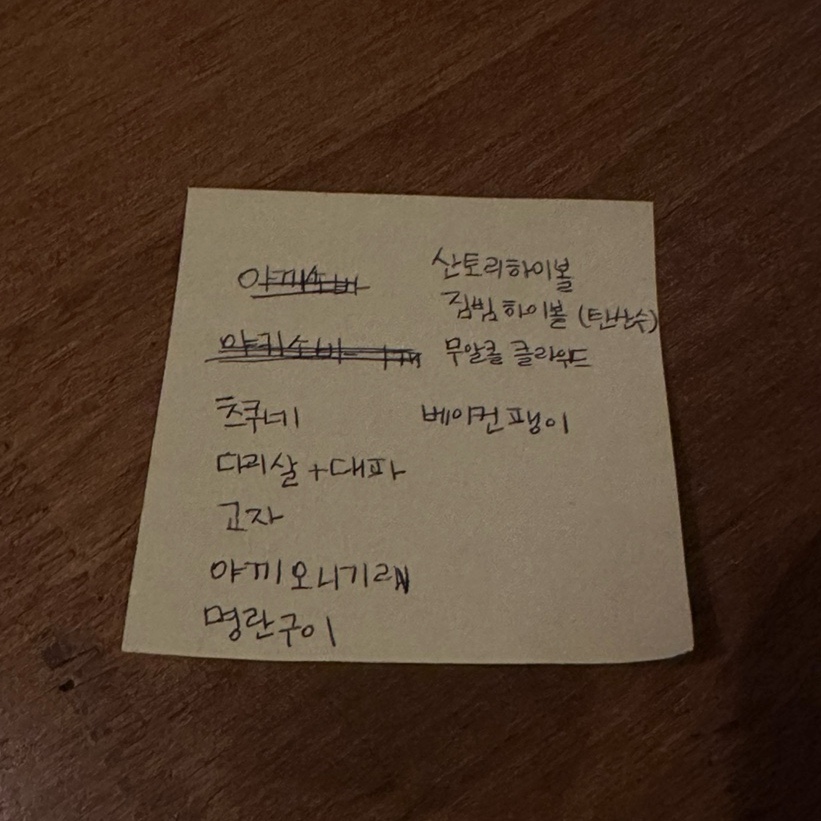 야끼소바
야키소바
츠쿠네
다리살 + 대파
교자
야끼오니기리
명란구이
산토리하이볼
짐빔하이볼 (탄산수)
무알콜 클라우드
베이컨팽이